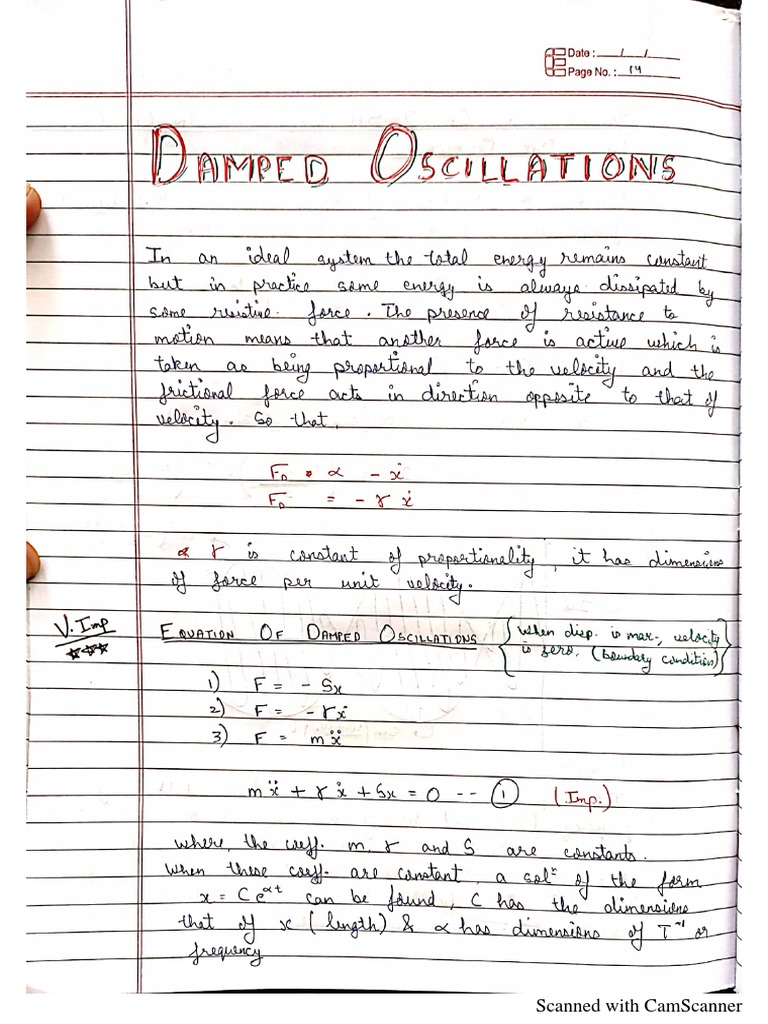 Date : __/__/__
Page No. : 14
DAMPED OSCILLATIONS
In an ideal system the total energy remains constant
but in practice some energy is always dissipated by
some resistive force. The presence of resistance to
motion means that another force is active which is
taken as being proportional to the velocity and the
frictional force acts in direction opposite to that of
velocity. So that,
F_D ∝ - ẋ
F_D = - γ ẋ
γ is constant of proportionality, it has dimensions
of force per unit velocity.
V. Imp
EQUATION OF DAMPED OSCILLATIONS {When disp. is max, velocity
is zero, (boundary condition)}
1) F = - Sx
2) F = - γẋ
3) F = mẍ
mẍ + γẋ + Sx = 0 -- ① (Imp.)
where, the coeff. m, γ and S are constants.
When these coeff. are constant, a solⁿ of the form
x = Ce^αt can be found, C has the dimensions
that of x (length) & α has dimensions of T⁻¹ or
frequency
Scanned with CamScanner